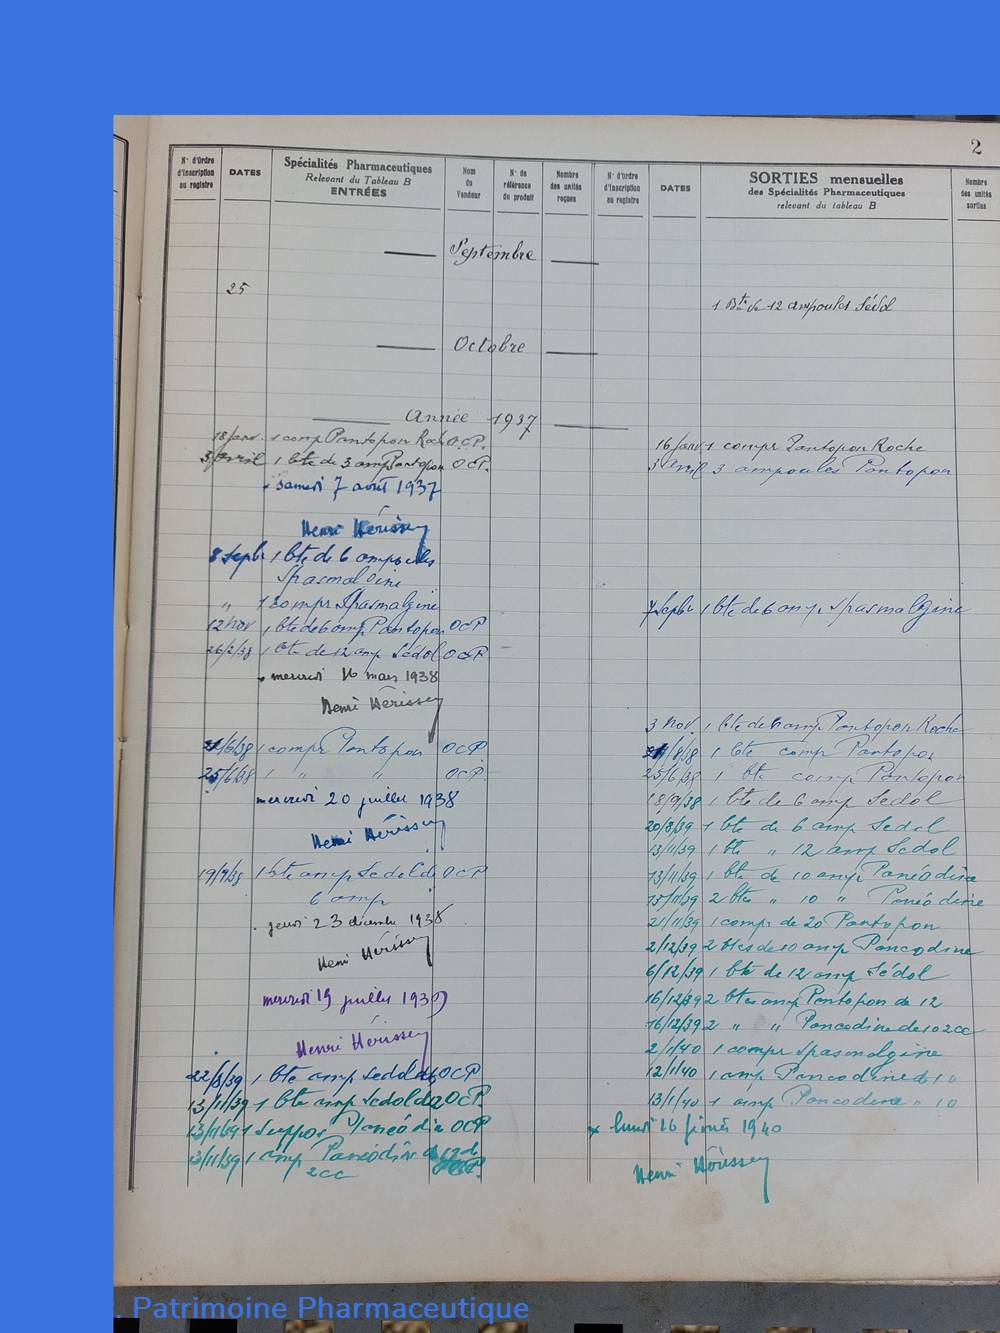 2
N° d'Ordre d'inscription au registre
DATES
Spécialités Pharmaceutiques
Relevant du Tableau B
ENTRÉES
Nom du Vendeur
N° de référence du produit
Nombre des unités reçues
N° d'Ordre d'inscription au registre
DATES
SORTIES mensuelles
des Spécialités Pharmaceutiques
relevant du tableau B
Nombre des unités sorties
Septembre
25
1 Bte de 12 ampoules Sédol
Octobre
Année 1937
18 janv. 1 comp Pantopon Roche OCP.
16 janv 1 compr Pantopon Roche
3 avril 1 bte de 3 amp Pantopon OCP.
3 avril 3 ampoules Pantopon
samedi 7 août 1937
Henri Hérissey
8 Sept. 1 bte de 6 ampoules
Spasmalgine
" 1 compr Spasmalgine
7 Septbr 1 bte de 6 amp Spasmalgine
12 nov 1 bte de 6 amp Pantopon OCP
26/2/38 1 bte de 12 amp Sédol OCP
mercredi 16 mars 1938
Henri Hérissey
3 nov. 1 bte de 6 amp Pantopon Roche
21/6/38 1 compr Pantopon OCP
1 bte comp Pantopon
25/6/38 1 " " OCP
25/6/38 1 bte comp Pantopon
mercredi 20 juillet 1938
18/9/38 1 bte de 6 amp Sedol
Henri Hérissey
20/8/39 1 bte de 6 amp Sedol
13/11/39 1 bte " 12 amp Sedol
19/9/38 1 bte amp Sedol de OCP
6 amp
13/11/39 1 bte de 10 amp Panéodine
15/11/39 2 btes " 10 " Panéodine
jeudi 23 décembre 1938
21/11/39 1 compr de 20 Pantopon
Henri Hérissey
2/12/39 2 btes de 10 amp Pancodine
6/12/39 1 bte de 12 amp Sédol
mercredi 19 juillet 1939
16/12/39 2 btes amp Pantopon de 12
16/12/39 2 " " Pancodine de 10 2cc
Henri Hérissey
2/1/40 1 compr Spasmalgine
22/8/39 1 bte amp Sedol de 6 OCP
12/1/40 1 amp Pancodine
13/11/39 1 bte amp Sedol de 12 OCP
13/1/40 1 amp Pancodine " 10
13/11/39 1 Suppos OCP
lundi 26 1940
13/11/39 1 amp
2cc
Henri Hérissey
Patrimoine Pharmaceutique